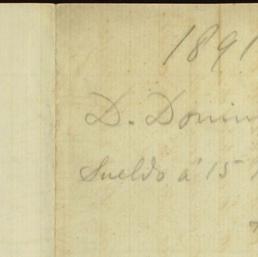 1891
D. Domin
Sueldo á 15